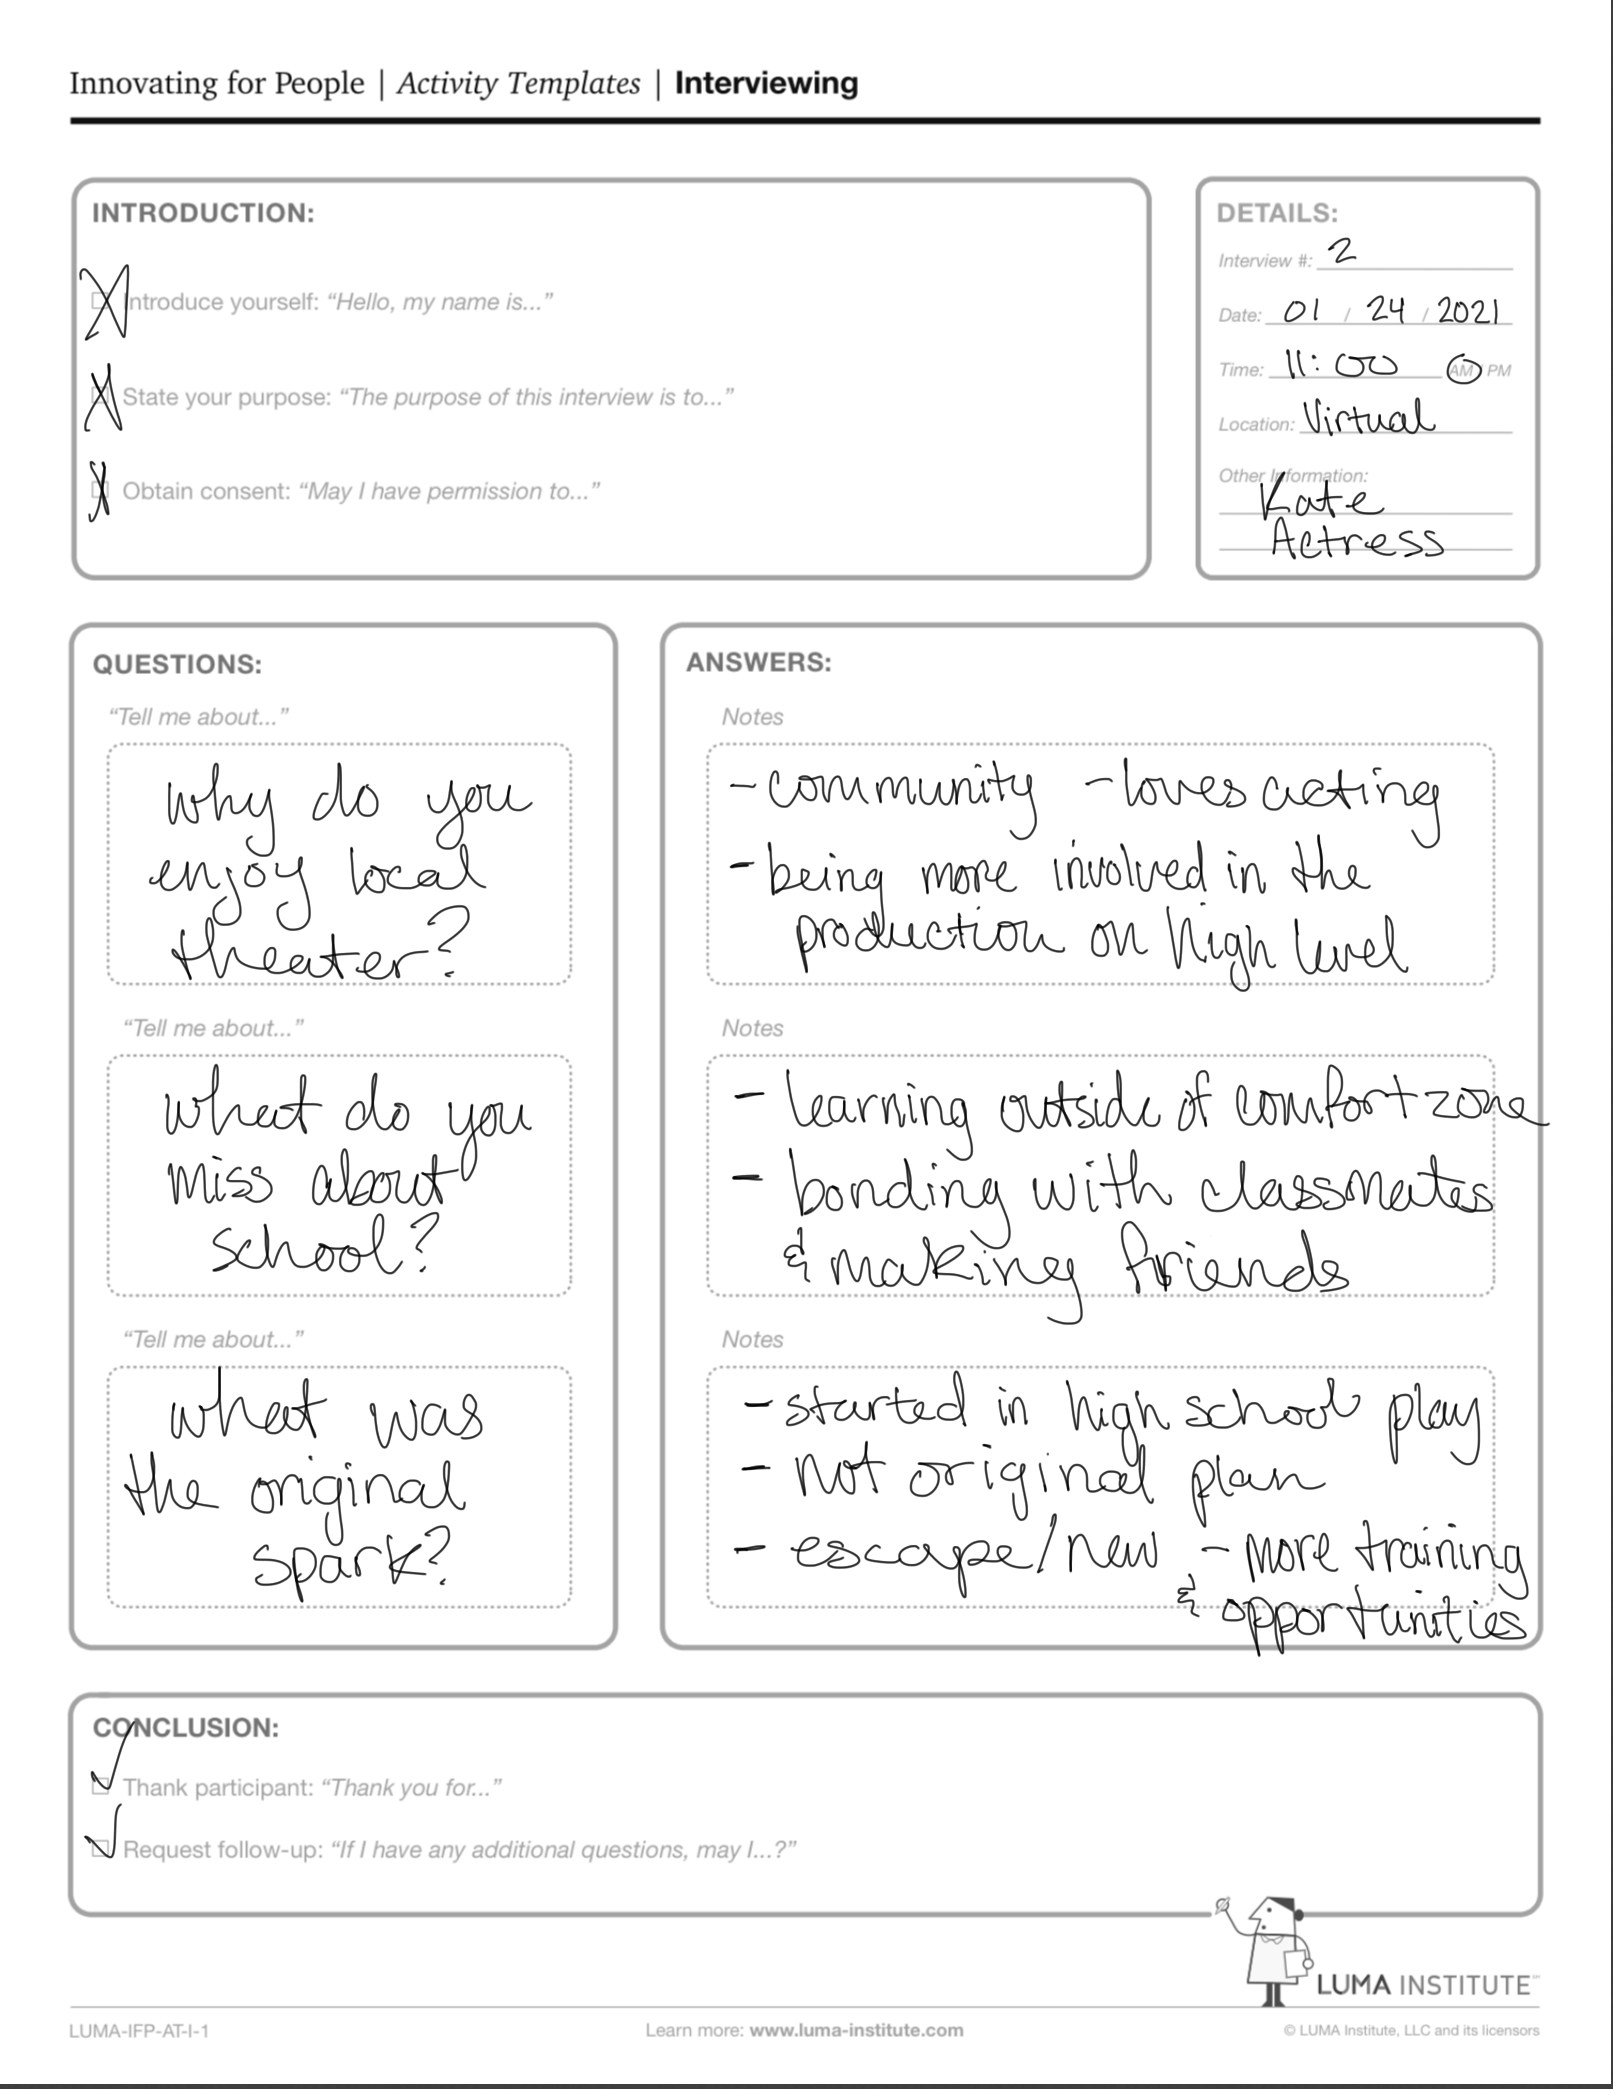 Innovating for People | Activity Templates | Interviewing
INTRODUCTION:
Introduce yourself: “Hello, my name is...”
State your purpose: “The purpose of this interview is to...”
Obtain consent: “May I have permission to...”
DETAILS:
Interview #: 2
Date: 01 / 24 / 2021
Time: 11:00 AM PM
Location: Virtual
Other Information:
Kate
Actress
QUESTIONS:
“Tell me about...”
why do you
enjoy local
theater?
“Tell me about...”
what do you
miss about
school?
“Tell me about...”
what was
the original
spark?
ANSWERS:
Notes
- community - loves acting
- being more involved in the
production on high level
Notes
- learning outside of comfort zone
- bonding with classmates
& making friends
Notes
- started in high school play
- not original plan
- escape/new - more training
& opportunities
CONCLUSION:
Thank participant: “Thank you for...”
Request follow-up: “If I have any additional questions, may I...?”
LUMA INSTITUTE
LUMA-IFP-AT-I-1
Learn more: www.luma-institute.com
© LUMA Institute, LLC and its licensors